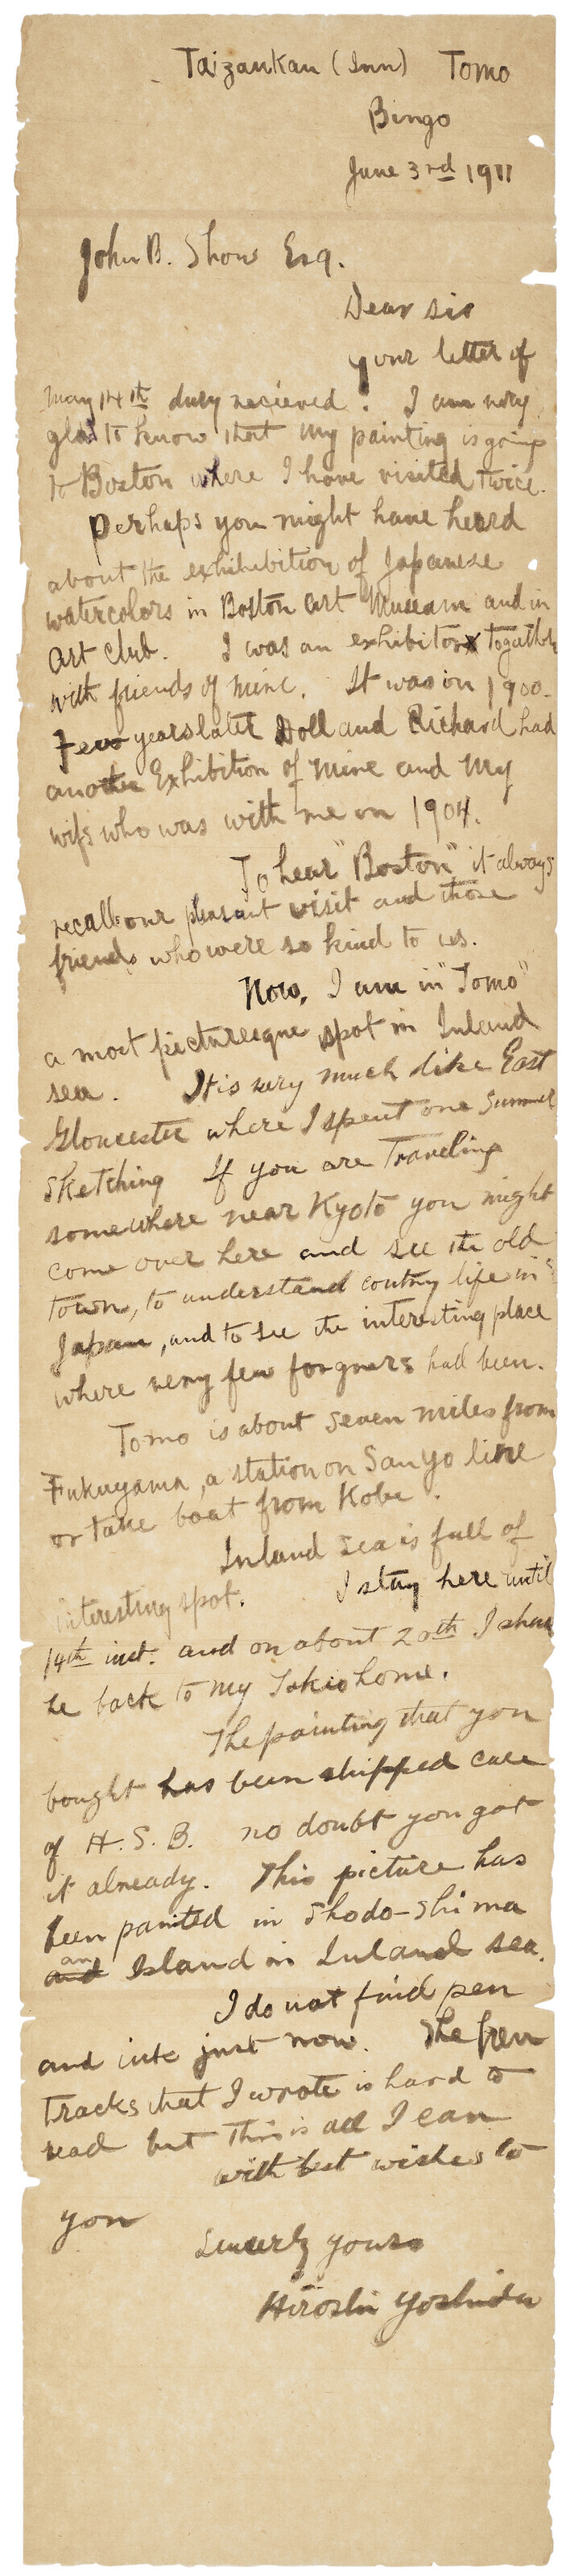 Taizankan (Inn) Tomo
Bingo
June 3rd 1911
John B. Show Esq.
Dear sir
your letter of
May 14th dury recieved. I am very
glad to know that my painting is going
to Boston where I have visited twice.
Perhaps you might have heard
about the exhihibition of Japanese
watercolors in Boston art Museam and in
art club. I was an exhibitor togather
with friends of mine. It was in 1900.
Few years later Doll and Richard had
another Exhibition of mine and my
wife who was with me in 1904.
To hear "Boston" it always
recall our pleasant visit and those
friends who were so kind to us.
Now, I am in "Tomo"
a most picturesque spot in Inland
sea. It is very much like East
Gloucester where I spent one summer
sketching If you are Traveling
somewhere near Kyoto you might
come over here and see the old
town, to understand contry life in
Japan, and to see the interesting place
where very few forgners had been.
Tomo is about seven miles from
Fukuyama, a station on Sanyo line
or take boat from Kobe.
Inland sea is full of
interesting spot. I stay here until
14th inst. and on about 20th I shall
be back to my Tokio home.
The painting that you
bought has been shipped care
of H.S.B. no doubt you got
it already. This picture has
been painted in Shodo-shima
and an Island in Inland sea.
I do not find pen
and ink just now. The pen
tracks that I wrote is hard to
read but this is all I can
with best wishes to
you
Sincerly yours
Hiroshi Yoshida